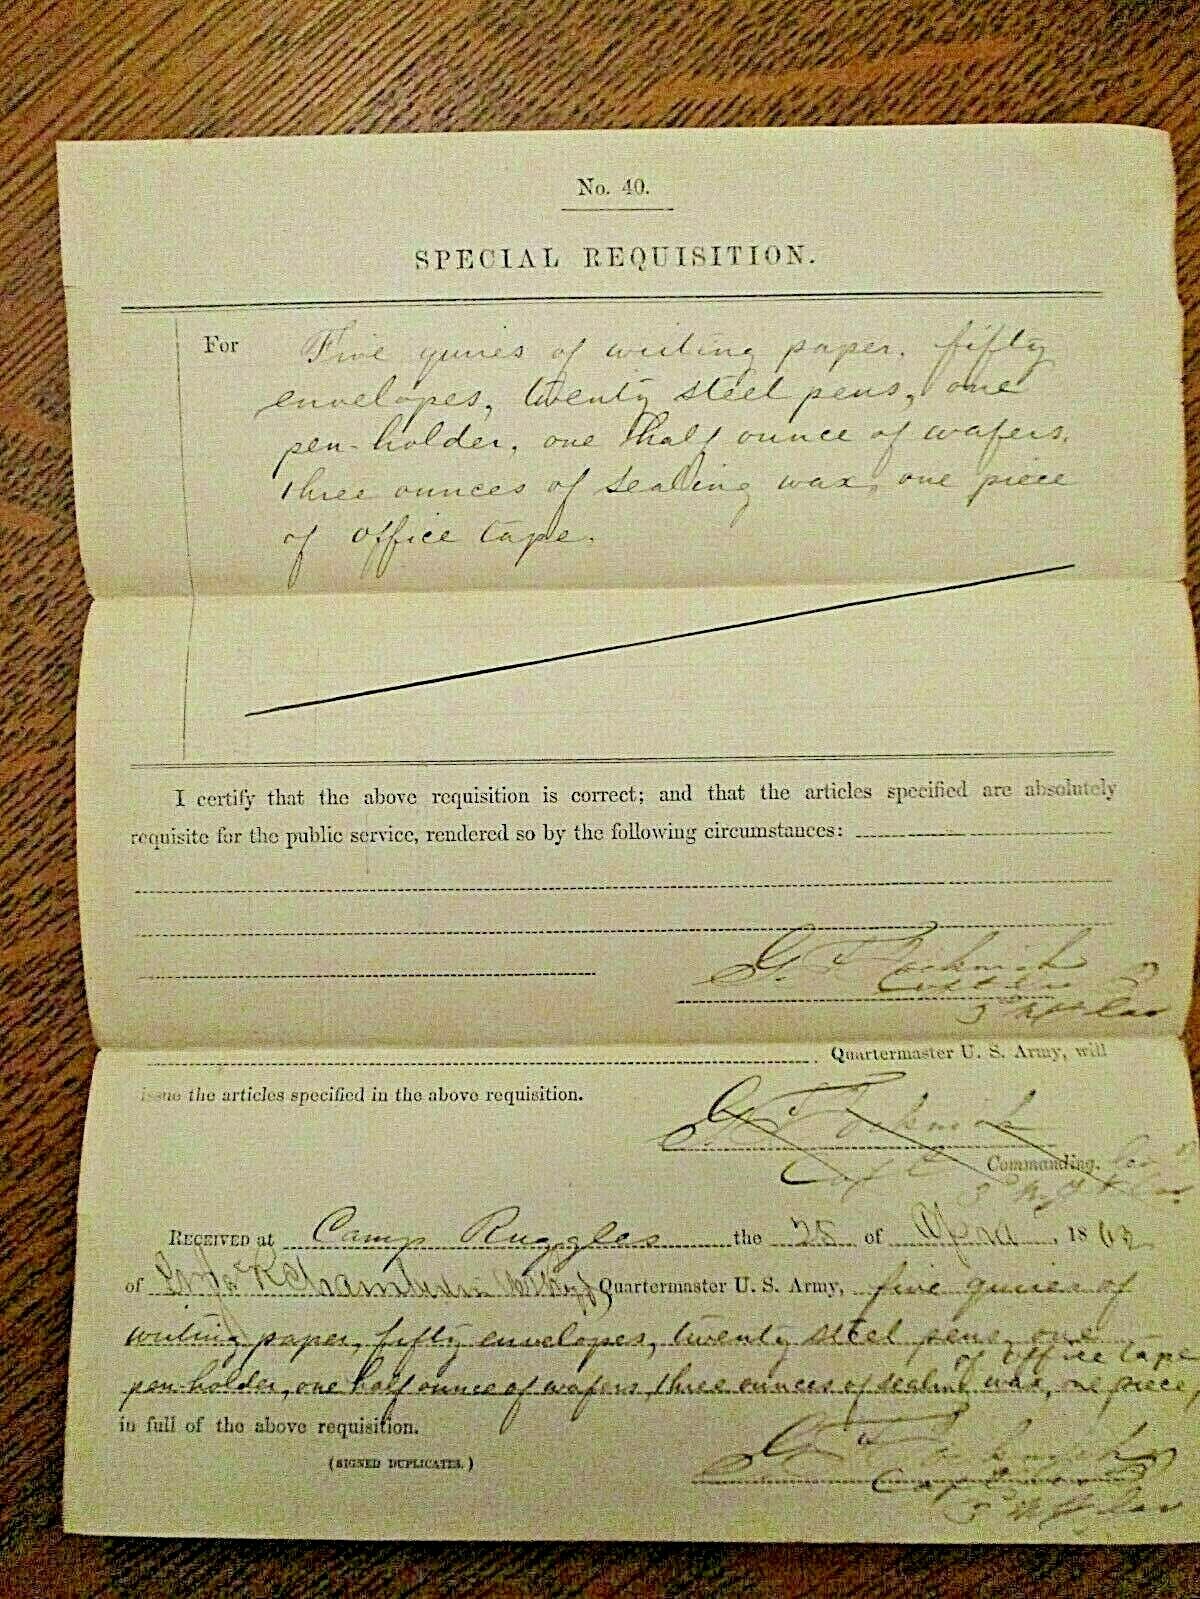 No. 40.
SPECIAL REQUISITION.
For Five quires of writing paper, fifty
envelopes, twenty steel pens, one
pen-holder, one half ounce of wafers,
three ounces of sealing wax, one piece
of office tape.
I certify that the above requisition is correct; and that the articles specified are absolutely
requisite for the public service, rendered so by the following circumstances:
G. F.
Quartermaster U. S. Army, will
issue the articles specified in the above requisition.
G. F.
Commanding.
RECEIVED at Camp Ruggles the 28 of April, 1863
of Quartermaster U. S. Army, five quires of
writing paper, fifty envelopes, twenty steel pens, one
of office tape
pen-holder, one half ounce of wafers, three ounces of sealing wax, one piece,
in full of the above requisition.
(SIGNED DUPLICATES.)
G. F.